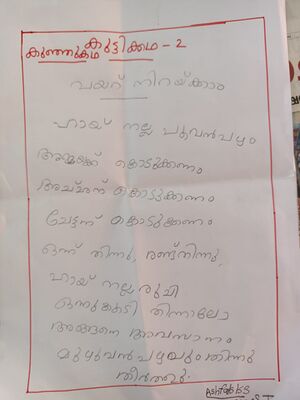 കുഞ്ഞുകഥ കുട്ടിക്കഥ - 2
വയറ് നിറയ്ക്കാം
ഹായ് നല്ല പൂവൻപഴം
അമ്മയ്ക്ക് കൊടുക്കണം
അച്ഛന് കൊടുക്കണം
ചേട്ടന് കൊടുക്കണം
ഒന്ന് തിന്നു, രണ്ട് തിന്നു,
ഹായ് നല്ല രുചി
ഒന്നുകൂടി തിന്നാലോ
അങ്ങനെ അവസാനം
മുഴുവൻ പഴവും തിന്നു
തീർത്തു.